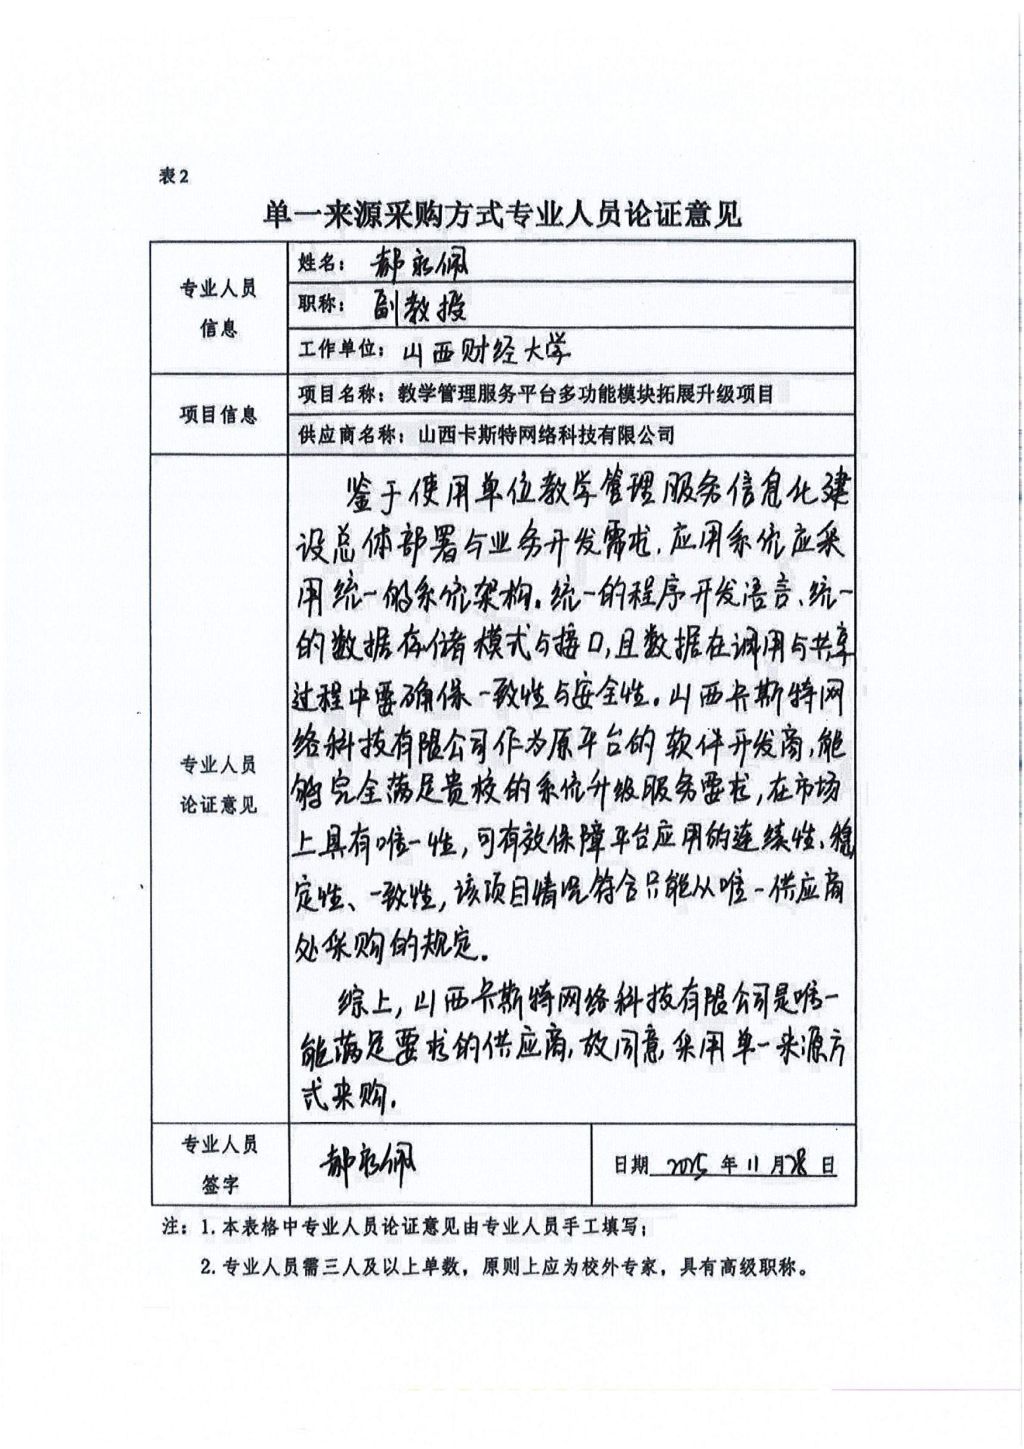 表2
单一来源采购方式专业人员论证意见
专业人员
信息
姓名：郝永佩
职称：副教授
工作单位：山西财经大学
项目信息
项目名称：教学管理服务平台多功能模块拓展升级项目
供应商名称：山西卡斯特网络科技有限公司
专业人员
论证意见
鉴于使用单位教学管理服务信息化建
设总体部署与业务开发需求，应用系统应采
用统一的系统架构。统一的程序开发语言、统一
的数据存储模式与接口，且数据在调用与共享
过程中要确保一致性与安全性。山西卡斯特网
络科技有限公司作为原平台的软件开发商，能
够完全满足贵校的系统升级服务要求，在市场
上具有唯一性，可有效保障平台应用的连续性、稳
定性、一致性，该项目情况符合只能从唯一供应商
处采购的规定。
综上，山西卡斯特网络科技有限公司是唯一
能满足要求的供应商，故同意采用单一来源方
式采购。
专业人员
签字
郝永佩
日期 2025 年 11 月 28 日
注：1.本表格中专业人员论证意见由专业人员手工填写；
2.专业人员需三人及以上单数，原则上应为校外专家，具有高级职称。